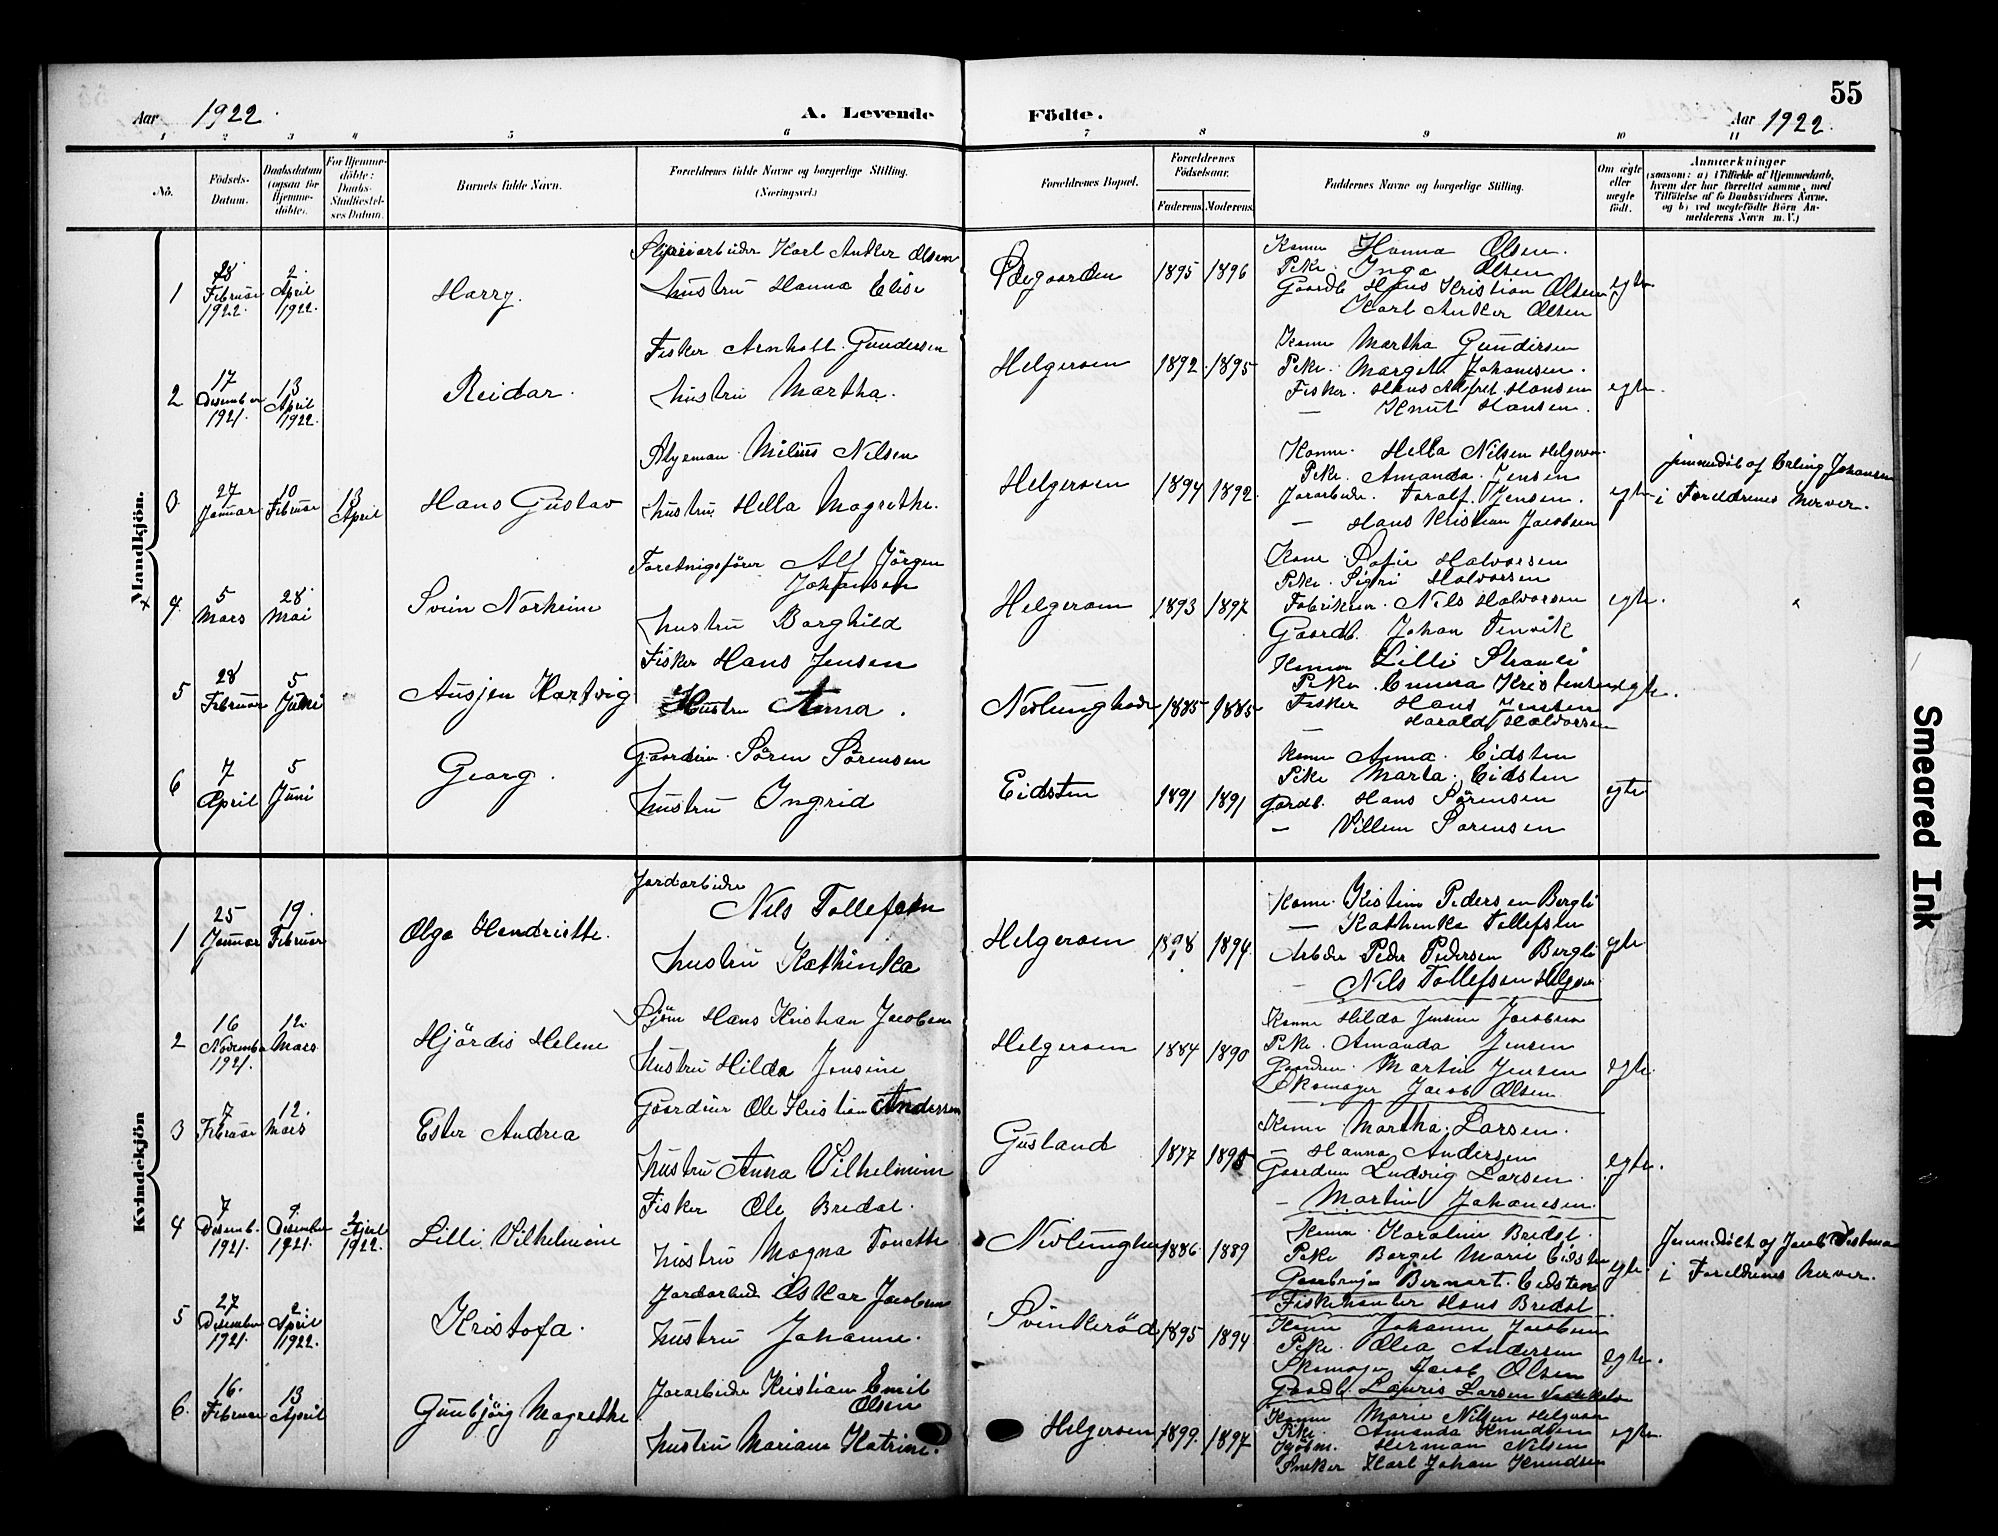 55
Aar 1922. A. Levende Födte. Aar 1922.
1 2 3 4 5 6 7 8 9 10 11
No.
Födsels-
Datum.
Daabsdatum
(ogsaa for
Hjemme-
döbte).
For Hjemme-
döbte:
Daabs-
Stadfæstel-
ses Datum.
Barnets fulde Navn.
Forældrenes fulde Navne og borgerlige Stilling.
(Næringsvei.)
Forældrenes Bopæl.
Forældrenes
Födselsaar.
Faderens. Moderens.
Faddernes Navne og borgerlige Stilling.
Om ægte
eller
uægte
födt.
Anmærkninger
(saasom: a) i Tilfælde af Hjemmedaab,
hvem der har forrettet samme, med
Tilföielse af to Daabsvidners Navne,
og b) ved uægtefödte Börn An-
melderens Navn m. V.)
Mandkjön.
1
28
Februar
1922.
2
April
1922.
Harry.
Karl Anker Olsen
hustru Hanna Elise
Ødegaarden
1895 1896
Kone Hanna Olsen.
Pike. Inga Olsen
Gaardb. Hans Kristian Olsen
Karl Anker Olsen
egte
2
17
Desember
1921.
13
April
1922.
Reidar.
Fisker Arnholt Gundersen
hustru Martha.
Helgeroen
1892 1895
Kone Martha Gundersen
Pike. Margit Johansen.
Fisker. Hans Alfred Hansen
— Knut Hansen.
egte.
3
27
Januar
10
Februar
13
April
Hans Gustav
Milius Nilsen
hustru Hella Magrethe.
Helgeroen
1894 1892.
Kone. Hella Nilsen Helgeroen.
Pike. Amanda Jensen
Jorarbeider. Toralf Jensen.
— Hans Kristian Jacobsen
egte
jemmedöbt af Erling Johansen
i Foreldrenes nerver.
4
5
Mars
28
Mai
Svein Norheim
Foretningsförer Alf Jörgen
Johansen
hustru Borghild
Helgeroen
1893 1897
Kone Sofie Halvorsen
Pike. Sigri Halvorsen
Nils Halvorsen
Gaardb. Johan Tenvik
egte.
5
28
Februar
5
Juni
Ausjen Hartvig
Fisker Hans Jensen
Hustru Anna.
Nevlunghavn
1885 1885
Kone Lilli
Pike. Emma Kristensen
Fisker Hans Jensen
Harald Halvorsen
egte.
6
7
April
5
Juni
Georg.
Gaardeier. Sören Sörensen
hustru Ingrid
Eidsten
1891 1891
Kone Anna. Eidsten
Pike Marta. Eidsten
Gardb. Hans Sörensen
— Villem Sorensen
egte
Kvindekjön
1
25
Januar
19.
Februar
Olga Hendriette.
Jordarbeider
Nils Tollefsen
hustru Kathinka
Helgeroen
1898 1894.
Kone. Kristine Pedersen Bergli
— Kathinka Tollefsen
Arbeider Peder Pedersen Bergli
Nils Tollefsen Helgeroen
egte
2
16
November
1921.
12.
Mars
Hjördis Helene
Sjöm Hans Kristian Jacobsen
hustru Hilda Jensine
Helgeroen
1884 1890
Kone Hilda Jensine Jacobsen
Pike. Amanda Jensen
Gaardeier. Martin Jensen
Skomager Jacob Olsen
egte.
3
7
Februar
12.
Mars
Ester Andrea
Gaardeier Ole Kristian Andersen
hustru Anna Vilhelmine
Gusland
1897
Kone Martha. Larsen.
— Hanna Andersen
Gaardeier Ludvig Larsen.
— Martin Johanesen.
egte.
4
7
Desemb.
1921.
9.
Desember
1921.
2
April
1922.
Lilli Vilhelmine
Fisker Ole Bredal.
hustru Magna Tonette
Nevlunghavn
1886. 1889
Kone. Karoline Bredal.
Pike Borgel Marie Eidsten
Bernart. Eidsten
Fiskehanler Hans Bredal
egte.
Jemmedöbt af Jacob
i Foreldrenes nerver.
5
27
Desember
1921.
2
April
1922.
Kristofa.
Jordarbeid Oskar Jacobsen
hustru Johanne.
Svinkeröd
1895 1894
Kone Johanne Jacobsen
Pike. Olea Andersen
Skomager Jacob Olsen
Gaardb. Lauris Larsen
egte.
6.
16.
Februar
13
April
Gunbjörg Magrethe
Jorarbeider Kristian Emil
Olsen
hustru Mariane Katrine.
Helgeroen
1899. 1897
Kone Marie Nilsen Helgeroen
Pike. Amanda Knudsen
Kjöbm. Herman Nilsen
Sneker Karl Johan Knudsen
egte.
Smeared Ink